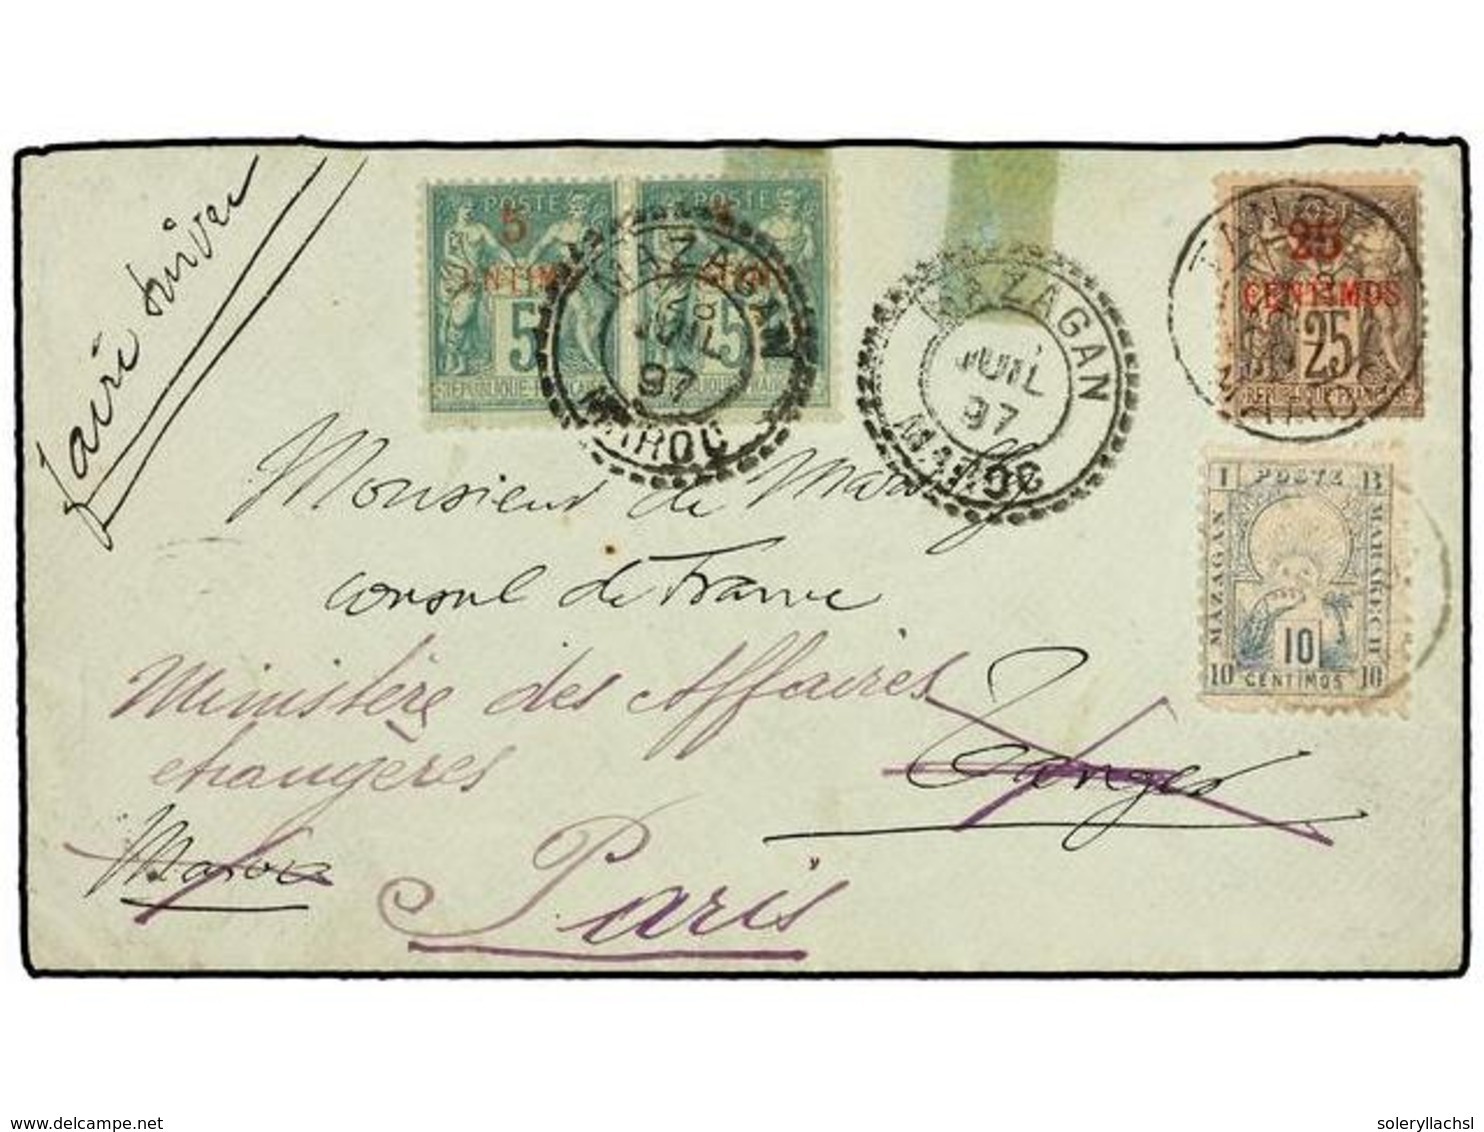 faire suivre
POSTE
5
CENTIMOS
5
RÉPUBLIQUE FRANÇAISE
POSTE
5
5
RÉPUBLIQUE FRANÇAISE
MAZAGAN
JUIL
97
MAROC
MAZAGAN
JUIL
97
MAROC
25
CENTIMOS
25
RÉPUBLIQUE FRANÇAISE
MAROC
1 POSTE B
MAZAGAN
MARRKECH
10
10 CENTIMOS 10
Monsieur de
Consul de France
Ministère des Affaires
etrangères
Tanger
Maroc
Paris
www.delcampe.net
soleryllachsl